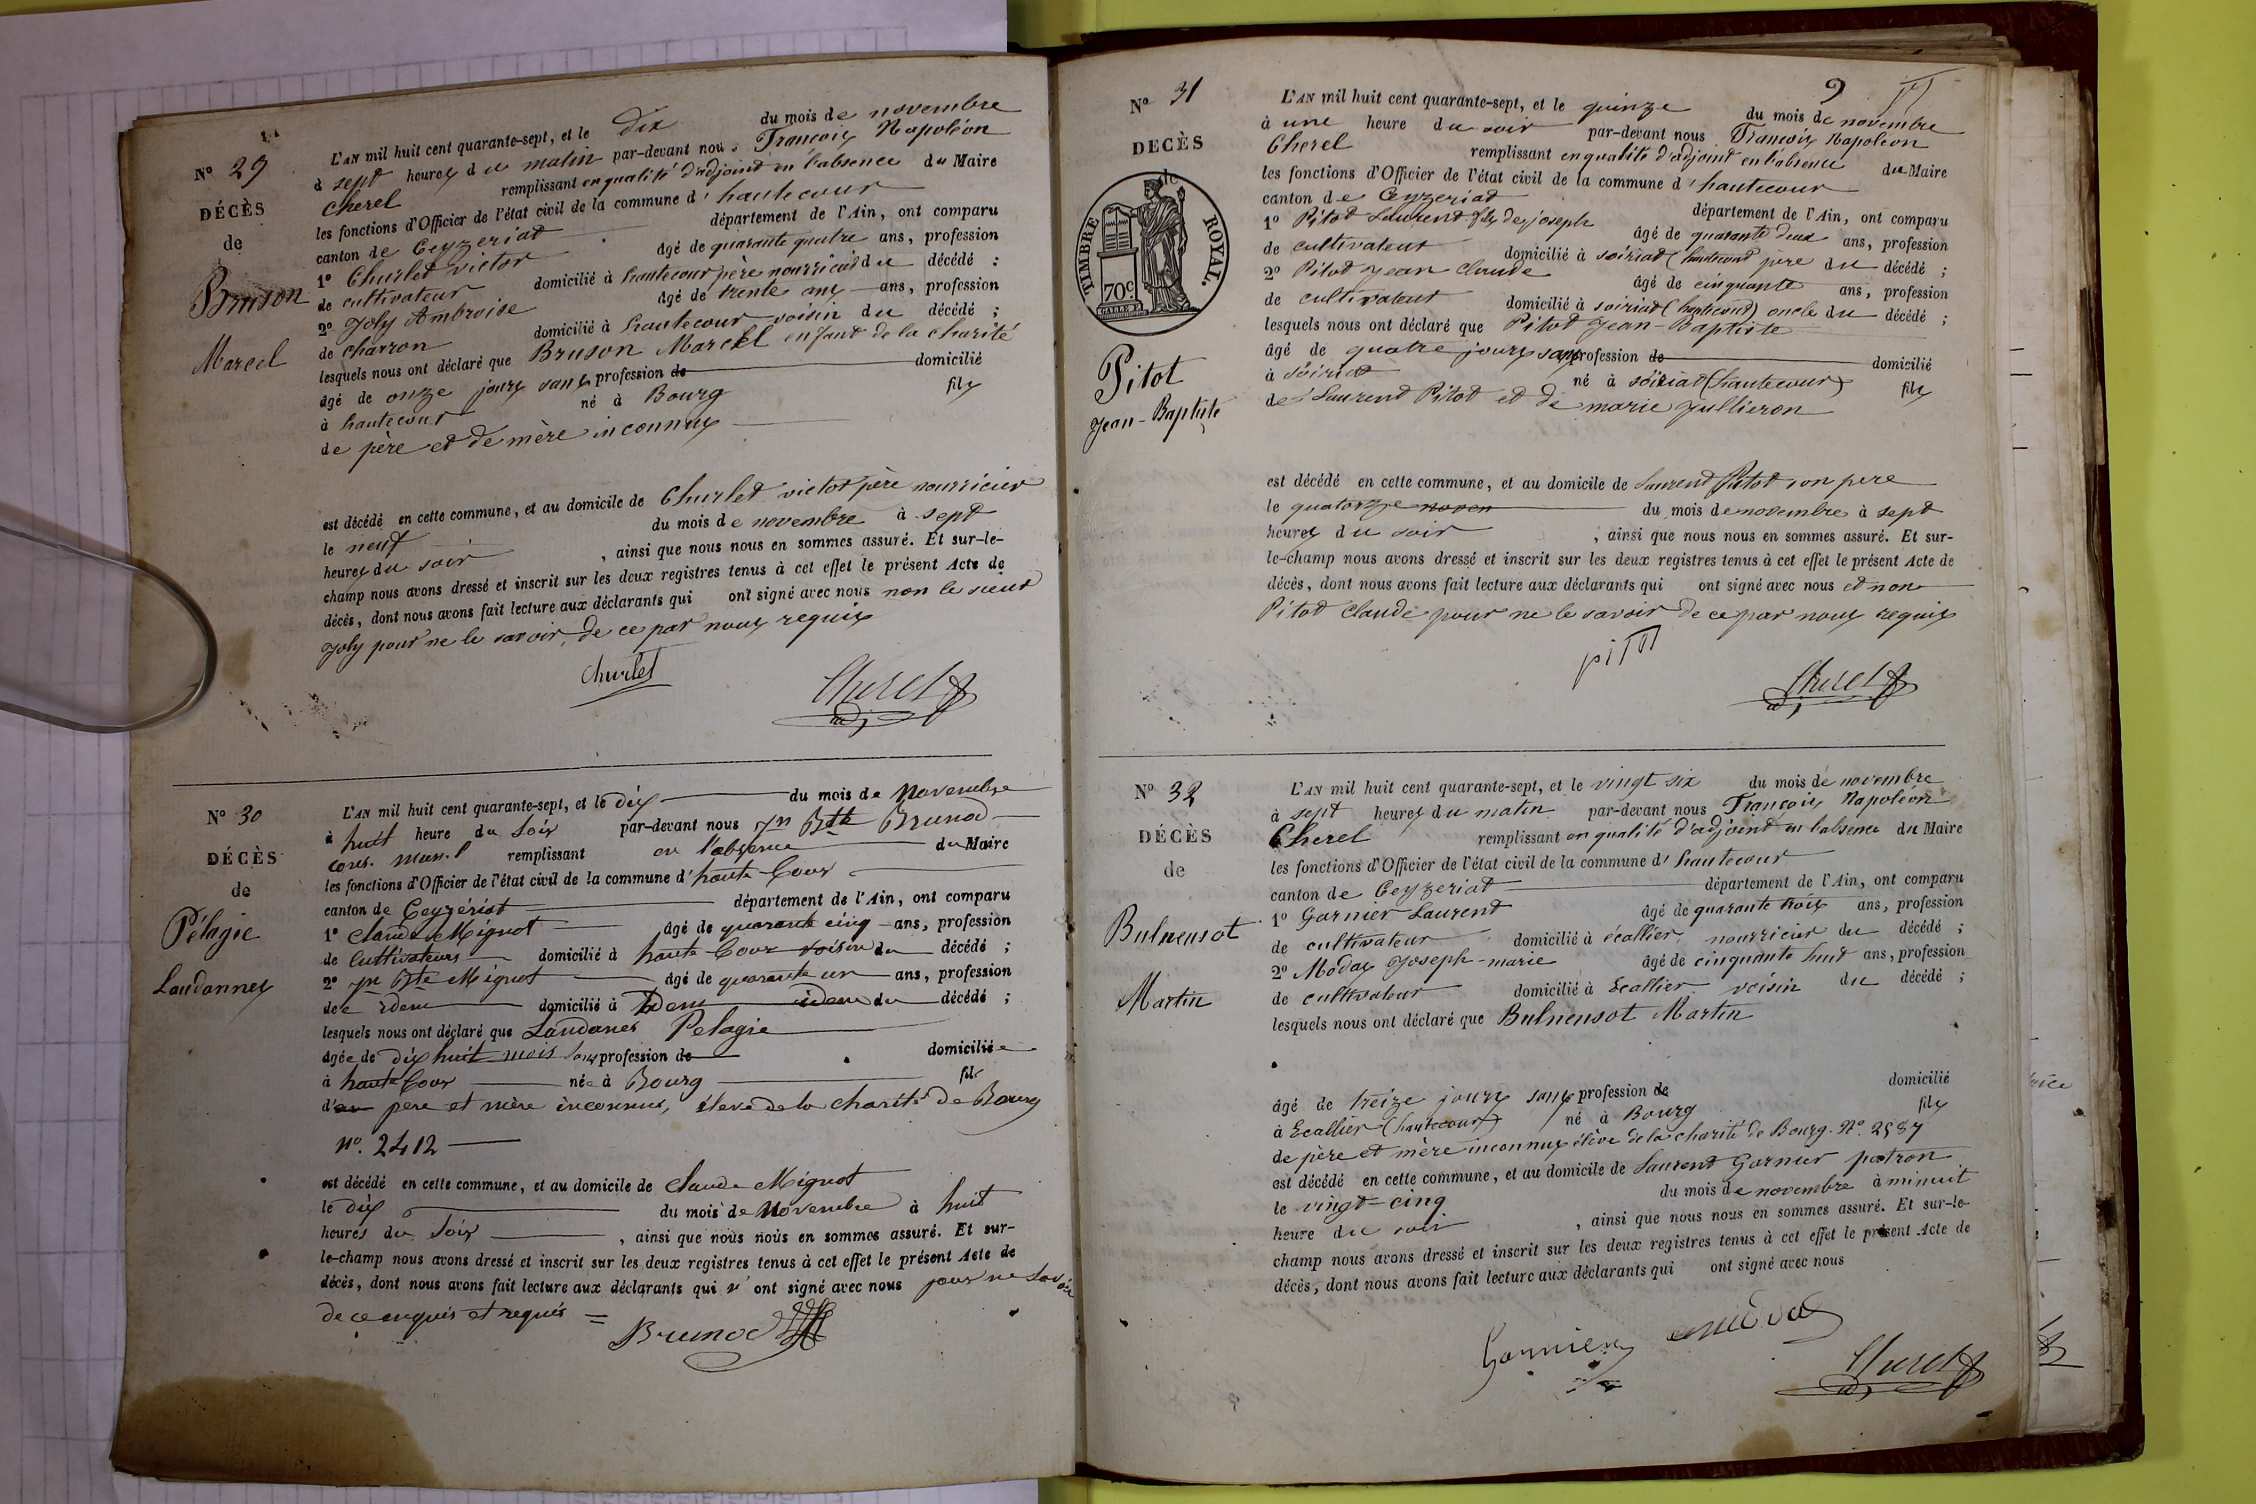 N° 29
DÉCÈS
de
Bruson
Marcel
L'AN mil huit cent quarante-sept, et le dix du mois de novembre
à sept heures du matin par-devant nous François Napoléon
Cherel remplissant en qualité d'adjoint en l'absence du Maire
les fonctions d'Officier de l'état civil de la commune d'hautecour
canton de Ceyzeriat département de l'Ain, ont comparu
1° Churlet victor âgé de quarante quatre ans, profession
de cultivateur domicilié à hautecour père nourricier du décédé ;
2° Joly Ambroise âgé de trente ans ans, profession
de charron domicilié à hautecour voisin du décédé ;
lesquels nous ont déclaré que Bruson Marcel enfant de la charité
âgé de onze jours sans profession de domicilié
à hautecour né à Bourg fils
de père et de mère inconnus
est décédé en cette commune, et au domicile de Churlet victor père nourricier
le neuf du mois de novembre à sept
heures du soir , ainsi que nous nous en sommes assuré. Et sur-le-
champ nous avons dressé et inscrit sur les deux registres tenus à cet effet le présent Acte de
décès, dont nous avons fait lecture aux déclarants qui ont signé avec nous non le sieur
Joly pour ne le savoir, de ce par nous requis
Churlet
Cherel
adj
N° 30
DÉCÈS
de
Pélagie
Laudannes
L'AN mil huit cent quarante-sept, et le dix du mois de Novembre
à huit heure du Soir par-devant nous Jn Bte Brunod
cons. mun.l remplissant en l'absence du Maire
les fonctions d'Officier de l'état civil de la commune d'haute Cour
canton de Ceyzériat département de l'Ain, ont comparu
1° Claude Mignot âgé de quarante cinq ans, profession
de Cultivateurs domicilié à haute Cour voisin du décédé ;
2° Jn Bte Mignot âgé de quarante un ans, profession
de idem domicilié à Idem idem du décédé ;
lesquels nous ont déclaré que Laudanes Pelagie
âgée de dix huit mois sans profession de domiciliée
à haute Cour née à Bourg fils
d' père et mère inconnus, élevé de la charité de Bourg
N°. 2412
est décédé en cette commune, et au domicile de Claude Mignot
le dix du mois de Novembre à huit
heures du Soir , ainsi que nous nous en sommes assuré. Et sur-
le-champ nous avons dressé et inscrit sur les deux registres tenus à cet effet le présent Acte de
décès, dont nous avons fait lecture aux déclarants qui n'ont signé avec nous pour ne savoir
de ce enquis et requis
Brunod
9
N° 31
DÉCÈS
de
TIMBRE ROYAL.
70c.
Pitot
Jean-Baptiste
L'AN mil huit cent quarante-sept, et le quinze du mois de novembre
à une heure du soir par-devant nous François Napoléon
Cherel remplissant en qualité d'adjoint en l'absence du Maire
les fonctions d'Officier de l'état civil de la commune d'hautecour
canton de Ceyzeriat département de l'Ain, ont comparu
1° Pitot Laurent fils de joseph âgé de quarante deux ans, profession
de cultivateur domicilié à soiriat (hautecour) pere du décédé ;
2° Pitot Jean Claude âgé de cinquante ans, profession
de cultivateur domicilié à soiriat (hautecour) oncle du décédé ;
lesquels nous ont déclaré que Pitot Jean-Baptiste
âgé de quatre jours sans profession de domicilié
à soiriat né à soiriat (hautecour) fils
de Laurent Pitot et de marie Jullieron
est décédé en cette commune, et au domicile de Laurent Pitot son pere
le quatorze noven du mois de novembre à sept
heures du soir , ainsi que nous nous en sommes assuré. Et sur-
le-champ nous avons dressé et inscrit sur les deux registres tenus à cet effet le présent Acte de
décès, dont nous avons fait lecture aux déclarants qui ont signé avec nous et non
Pitot Claude pour ne le savoir de ce par nous requis
pitot
Cherel
adj
N° 32
DÉCÈS
de
Bulneusot
Martin
L'AN mil huit cent quarante-sept, et le vingt six du mois de novembre
à sept heures du matin par-devant nous François Napoléon
Cherel remplissant en qualité d'adjoint en l'absence du Maire
les fonctions d'Officier de l'état civil de la commune d'hautecour
canton de Ceyzeriat département de l'Ain, ont comparu
1° Garnier Laurent âgé de quarante trois ans, profession
de cultivateur domicilié à écallier, nourricier du décédé ;
2° Modas Joseph-marie âgé de cinquante huit ans, profession
de cultivateur domicilié à Ecallier voisin du décédé ;
lesquels nous ont déclaré que Bulneusot Martin
âgé de treize jours sans profession de domicilié
à Ecallier (hautecour) né à Bourg fils
de père et mère inconnus élève de la charité de Bourg. N°. 2587
est décédé en cette commune, et au domicile de Laurent Garnier patron
le vingt-cinq du mois de novembre à minuit
heure du soir , ainsi que nous nous en sommes assuré. Et sur-le-
champ nous avons dressé et inscrit sur les deux registres tenus à cet effet le présent Acte de
décès, dont nous avons fait lecture aux déclarants qui ont signé avec nous
Garnier
Cherel
adj